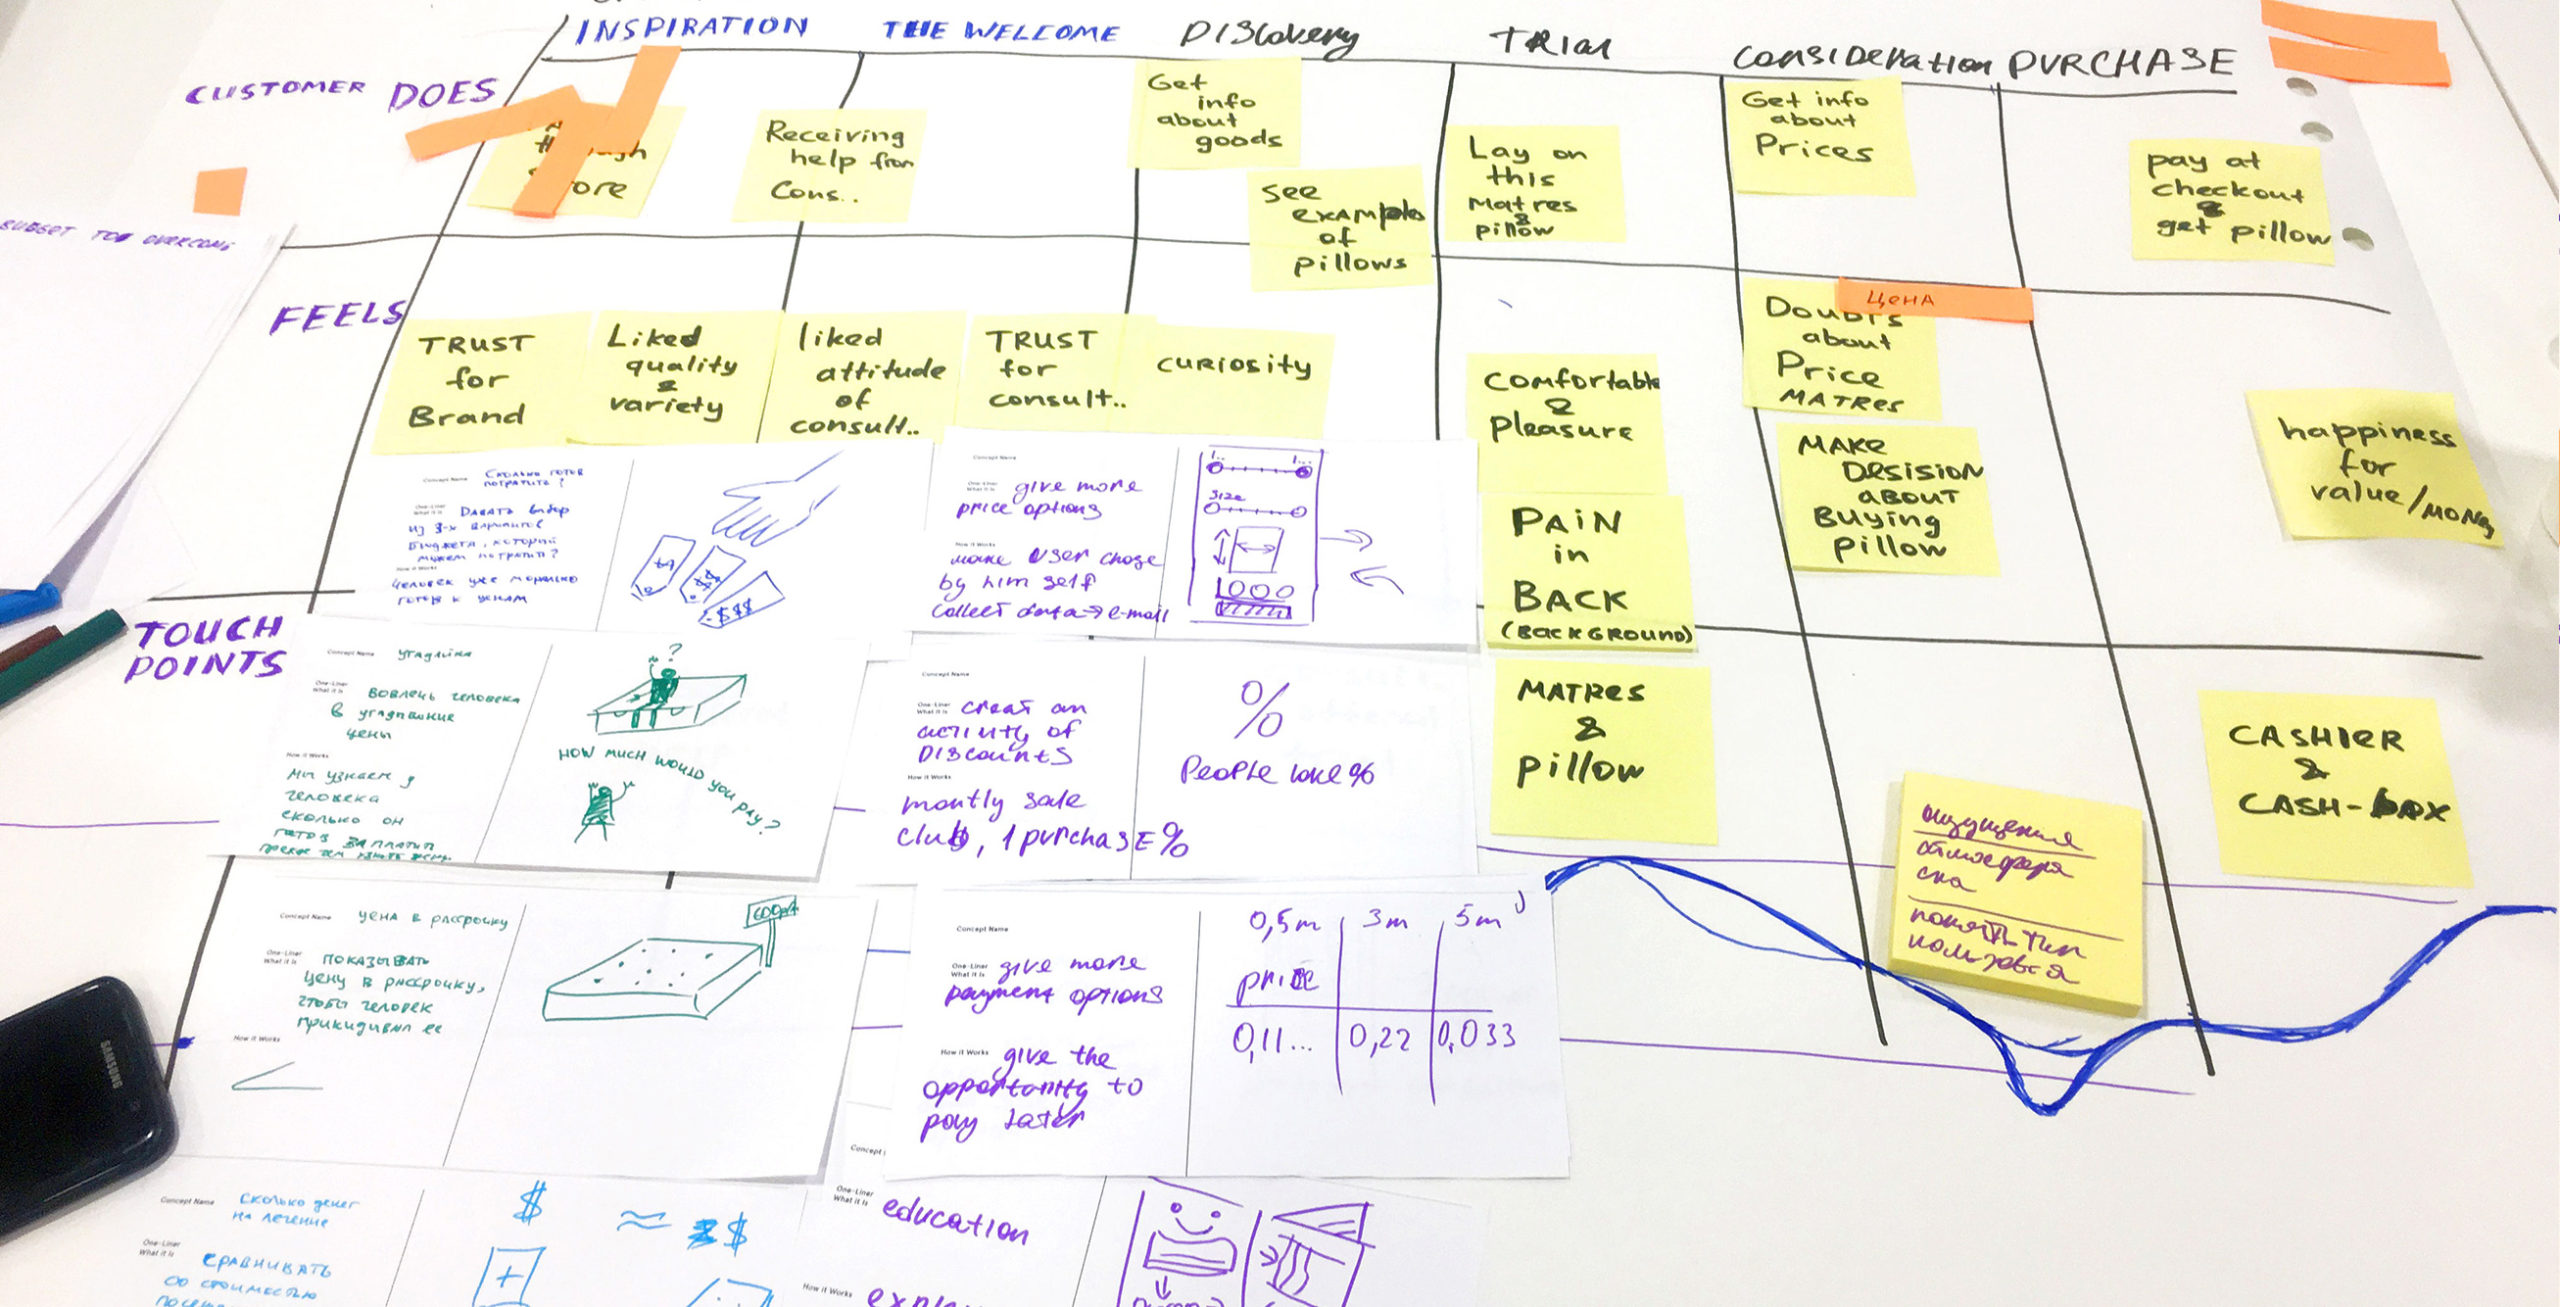 INSPIRATION
THE WELCOME
DISCOVERY
TRIAL
CONSIDERATION
PURCHASE
CUSTOMER DOES
ore
Receiving
help from
Cons..
Get
info
about
goods
See
examples
of
pillows
Lay on
this
Matres
&
pillow
Get info
about
Prices
pay at
checkout
&
get pillow
BUDGET TOO OVERCOME
FEELS
TRUST
for
Brand
Liked
quality
&
variety
liked
attitude
of
consult..
TRUST
for
consult..
curiosity
Comfortable
&
pleasure
PAIN
in
BACK
(BACKGROUND)
ЦЕНА
Doubts
about
Price
MATRES
MAKE
DESISION
ABOUT
Buying
pillow
happiness
for
value/money
TOUCH
POINTS
MATRES
&
pillow
CASHIER
&
CASH-BOX
ощущения
атмосфера
сна
Concept Name
Сколько готов
потратить?
One-Liner
What it is
Давать выбор
из 3-х вариантов
бюджета, который
можем потратить?
How it Works
Человек уже морально
готов к ценам
$
$$
$$$
Concept Name
One-Liner
What it is
give more
price options
How it Works
make user chose
by him self
collect data → e-mail
1..
1...
Size
1000
Concept Name
угадайка
One-Liner
What it is
вовлечь человека
в угадывание
цены
How it Works
Мы узнаем у
человека
сколько он
готов заплатить
прежде чем узнать цену
?
HOW MUCH WOULD YOU PAY?
Concept Name
One-Liner
What it is
creat an
activity of
Discounts
How it Works
montly sale
club, 1 purchase %
%
People love %
Concept Name
цена в рассрочку
One-Liner
What it is
показывать
цену в рассрочку,
чтобы человек
прикидывал ее
How it Works
SAMSUNG
Concept Name
One-Liner
What it is
give more
payment options
How it Works
give the
opportunity to
pay later
0,5m 3m 5m
price
0,11... 0,22 0,033
Concept Name
сколько денег
на лечение
One-Liner
What it is
сравнивать
со стоимостью
$ ≈ $
+
Concept
One-Liner
What it is
education
How it Works